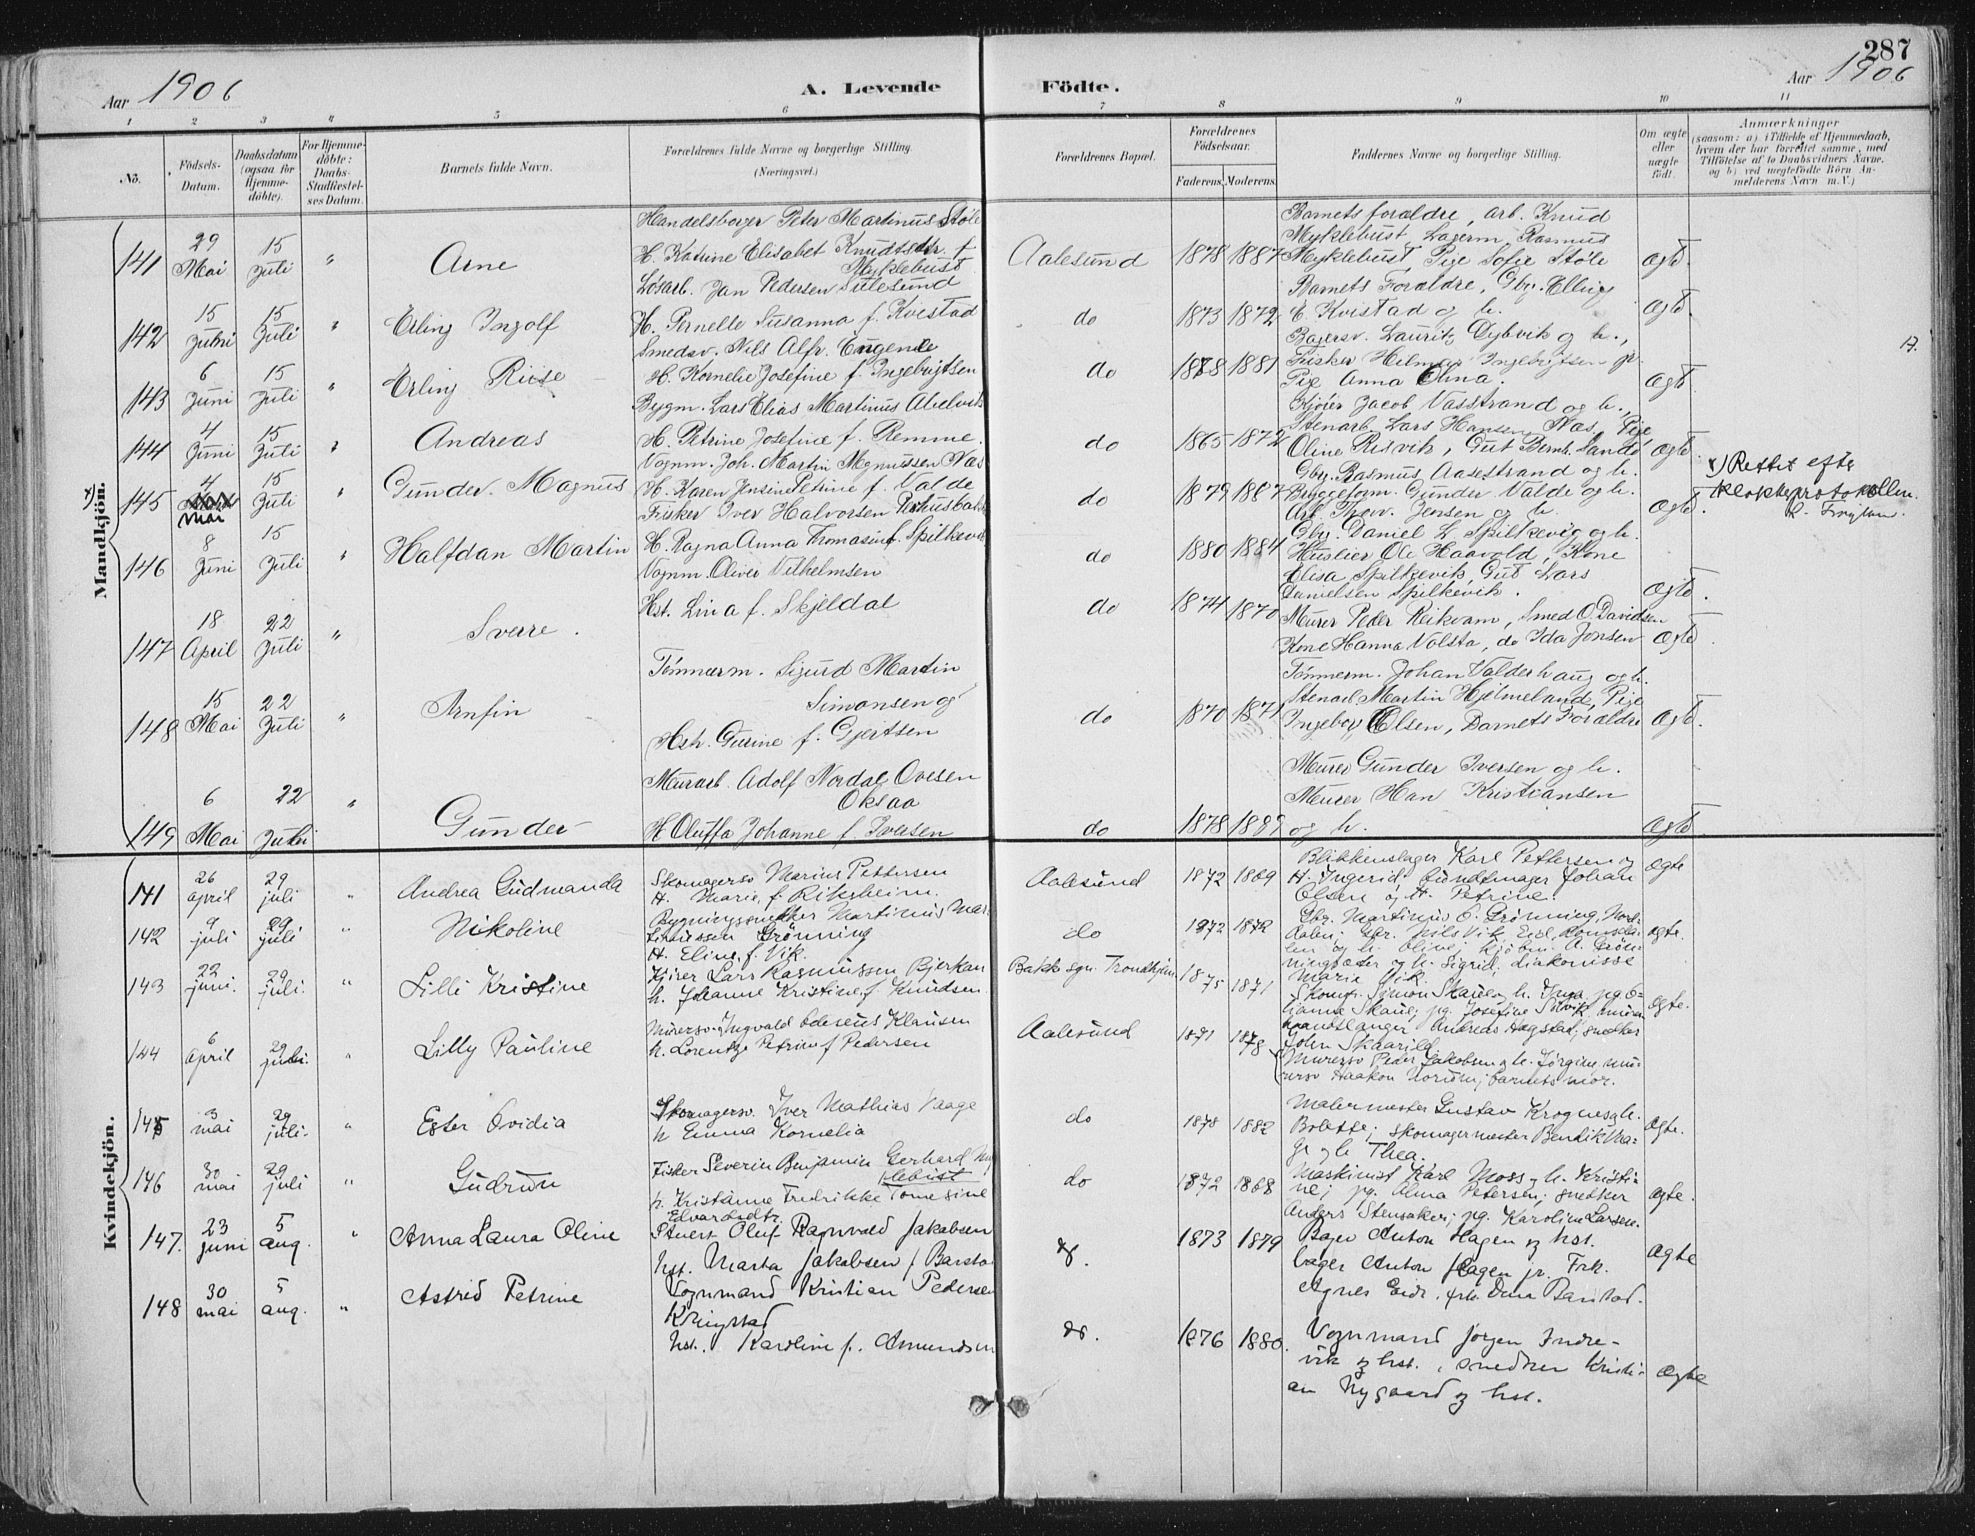 287
Aar 1906
A. Levende
Födte.
Aar 1906
1 2 3 4 5 6 7 8 9 10 11
No.
Födsels-Datum.
Daabsdatum (ogsaa for Hjemme-döbte).
For Hjemme-döbte: Daabs-Stadfæstel-ses Datum.
Barnets fulde Navn.
Forældrenes fulde Navne og borgerlige Stilling. (Næringsvei.)
Forældrenes Bopæl.
Forældrenes Födselsaar.
Faderens. Moderens.
Faddernes Navne og borgerlige Stilling.
Om ægte eller uægte födt.
Anmærkninger
(saasom: a) i Tilfælde af Hjemmedaab, hvem der har forrettet samme, med Tilföielse af to Daabsvidners Navne. og b) ved uegtefödte Börn An-melderens Navn m. V.)
Mandkjön.
141 29 Mai 15 Juli " Arne
Handelsborger Peter Martinus Støle
H. Katrine Elisabet Knudtsdtr. f. Myklebust
Aalesund 1878 1887
Barnets forældre, arb. Knud
Myklebust, Lagerm. Rasmus
Myklebust Pige Sofie Støle
Ægte.
142 15 Juni 15 Juli " Erling Ingolf
Løsarb. Jan Pedersen Sulesund
H. Pernelle Susanna f. Kvistad
do 1873 1872
Barnets Forældre, Gbr. Elling
E. Kvistad og h.
Ægte.
143 6 Juni 15 Juli " Erling Riise
Smedsv. Nils Alfr. Eugene
H. Kornelie Josefine f. Ingebrigtsen
do 1878 1881
Bagersv. Laurits Dybvik og h.,
Fisker Hilmar Ingebrigtsen
Pige Anna
Ægte
144 4 Juni 15 Juli " Andreas
Bygm. Lars Elias Martinus Abelvik
H. Petrine Josefine f. Remme.
do 1865 1872
Kjører Jacob Vasstrand og h.,
Stenarb. Lars Hansen Nas, Pige
Oline Risvik, Gut Bernh. Sandø
Ægte
145 4 Mai 15 Juli " Gunder Magnus
Vognm. Joh. Martin Magnussen Næs
H. Karen Jensine Petrine f. Valde
do 1879 1887
Gbr. Rasmus Aasestrand og h.
Byggeform. Gunder Valde og h.
Arb. Thorv. Jensen og h.
Ægte.
x) Rettet efter
klokkerprotokollen.
146 8 Juni 15 Juli " Halfdan Martin
Fisker Iver Halvorsen
H. Ragna Anna Thomasine f. Spilkevik
do 1880 1884
Gbr. Daniel L Spilkevig og h.
Huslier Ole Haavold, Kone
Elisa Spilkevik, Gut Lars
Danielsen Spilkevik.
Ægte.
147 18 April 22 Juli " Sverre.
Vognm. Oliver Vilhelmsen
Hst. Lina f. Skjeldal
do 1874 1870
Murer Peder Reikvam, Smed O. Davidsen
Kone Hanna Volsta, do Ida Jensen
Ægte.
148 15 Mai 22 Juli " Arnfin
Tømmerm. Sigurd Martin
Simonsen og
Hst. Gurine f. Gjertsen
do 1870 1871
Tømmerm. Johan Valderhaug og h.
Stenarb. Martin Hjelmeland, Pige
Ingeborg Olsen, Barnets Forældre
Ægte.
149 6 Mai 22 Juli " Gunder
Murarb. Adolf Nordal Ovesen
Oksaa
H. Oluffa Johanne f. Iversen
do 1878 1889
Murer Gunder Iversen og h.
Murer Han Kristiansen
og h.
Ægte
Kvindekjön.
141 26 april 29 juli " Andrea Gudmanda
Skomagersv. Marius Pettersen
H. Marie f. Riksheim.
Aalesund 1872 1869
Blikkenslager Karl Pettersen og
H. Ingerid, Johan
Olsen og H. Petrine.
Ægte
142 9 juli 29 juli " Nikoline
Bygningssnekker Martinius Mar-
Grønning
H. Eline f. Vik.
do 1872 1872
Gbr. Martinius O. Grønning,
Nils Vik Eid, Romsda-
len og h. Olive;
og h. Sigrid, diakonisse
Marie Vik.
Ægte.
143 22 juni. 29 juli. " Lilli Kristine
Kjører Lars Rasmussen Bjerkan
h. Johanne Kristine f. Knudsen.
Bakk sgn. Trondhjem 1875 1871
Skomr. Simon Skaue og h. Inga, pg.
Skaue; pg. Josefine
haandslanger Andreas Hagstad, snekker
John Skaarild.
Ægte.
144 6 april 29 juli. " Lilly Pauline
Murersv. Ingvald Edeseus Klausen
h. Lorentze Petrine f Pedersen
Aalesund 1871 1878
Murersv Peder Jakobsen og h. Jørgine, mu-
rersv Haakon Norum; barnets mor.
145 3 mai 29 juli. " Ester Ovidia
Skomagersv. Iver Mathias Vaage
h Emma Kornelia
do 1878 1882
Malermester Gustav Krognes og h.
Bolette; skomagermester Bendik Vaa-
ge og h Thea.
Ægte.
146 30 mai 29 juli " Gudrun
Fisker Severin Benjamin Gerhard My-
klebust
h. Kristianne Fredrikke Tomesine
Edvardsdtr.
do 1872 1868
Maskinist Karl Moss og h. Kristi-
ne; pg. Alma Petersen; snekker
Anders Stensaker; pg. Karoline Larsen.
Ægte.
147. 23 juni 5 aug. " Anna Laura Oline
Stuert Oluf Ragnvald Jakobsen
hst. Marta Jakobsen f Barstad
do. 1873 1879
Bager Anton Hagen og hst.
bager Anton Hagen jr. Frk.
Agnes Eide, frk. Barstad.
Ægte
148 30 mai 5 aug. " Astrid Petrine
Vognmand Kristian Pedersen
Kringstad
hst. Karoline f. Amundsen
do. 1876 1880.
Vognmand Jørgen Indre-
vik og hst., snedker Kristi-
an Nygaard og hst.
Ægte